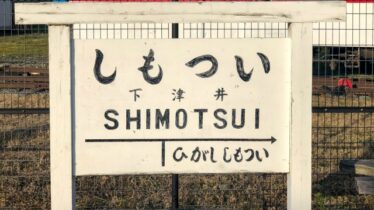 しもつい
下津井
SHIMOTSUI
ひがししもつい